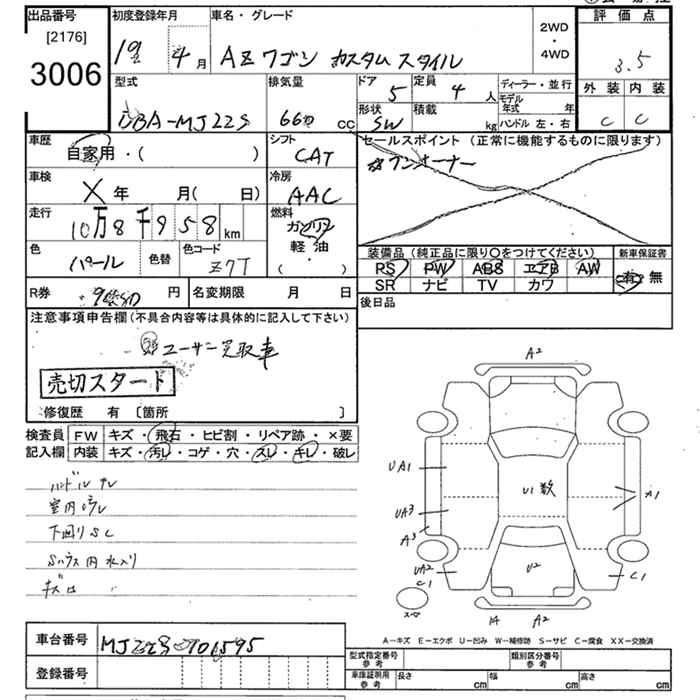 出品番号 初度登録年月 車名・グレード 2WD・4WD 評価点
[2176]
3006 19年 4月 AZワゴン カスタムスタイル 3.5
型式 排気量 ドア 定員 ディーラー・並行 外装 内装
DBA-MJ22S 660 CC 5 4人 モデル年式 年 C C
形状 積載 kg ハンドル 左・右
SW
車歴 シフト セールスポイント(正常に機能するものに限ります)
自家用・( ) CAT ワンオーナー
車検 冷房
X年 月( 日) AAC
走行 燃料
10万8千958km ガソリン
軽油
・( )
色 色替 色コード 装備品(純正品に限り〇をつけてください) 新車保証書
パール Z7T PS PW ABS エアB AW 有・無
SR ナビ TV カワ
R券 円 名変期限 月 日 後日品
注意事項申告欄(不具合内容等は具体的に記入して下さい)
ユーザー買取車
売切スタート
修復歴 有 [箇所 ]
検査員 FW キズ・飛石・ヒビ割・リペア跡・×要
記入欄 内装 キズ・汚レ・コゲ・穴・スレ・キレ・破レ
ハンドルスレ
室内汚レ
下回りSC
Sハウス内水入り
A2
UA1
U1 数
A1
UA3
A3
UA2
C1
U2
C1
A2
A-キズ E-エクボ U-凹み W-補修跡 S-サビ C-腐食 XX-交換済
車台番号 MJ22S-701595
登録番号
型式指定番号 参考 類別区分番号 参考
車庫証明用 参考 長さ cm 幅 cm 高さ cm